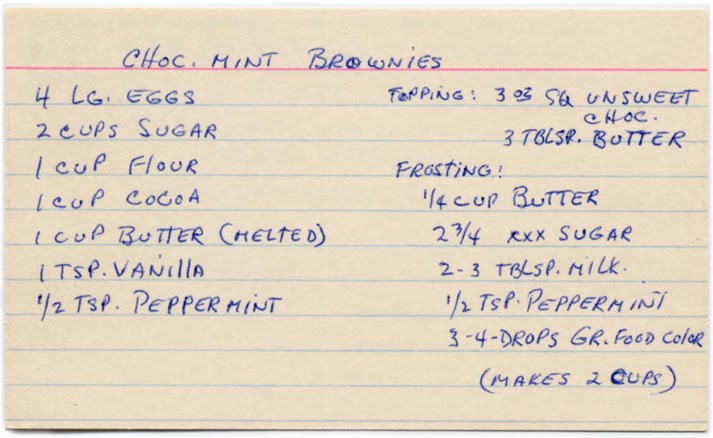 CHOC. MINT BROWNIES
4 LG. EGGS
2 CUPS SUGAR
1 CUP FLOUR
1 CUP COCOA
1 CUP BUTTER (MELTED)
1 TSP. VANILLA
1/2 TSP. PEPPERMINT
TOPPING: 3 OZ SQ UNSWEET
CHOC.
3 TBLSP. BUTTER
FROSTING:
1/4 CUP BUTTER
2 3/4 XXX SUGAR
2-3 TBLSP. MILK.
1/2 TSP. PEPPERMINT
3-4-DROPS GR. FOOD COLOR
(MAKES 2 CUPS)